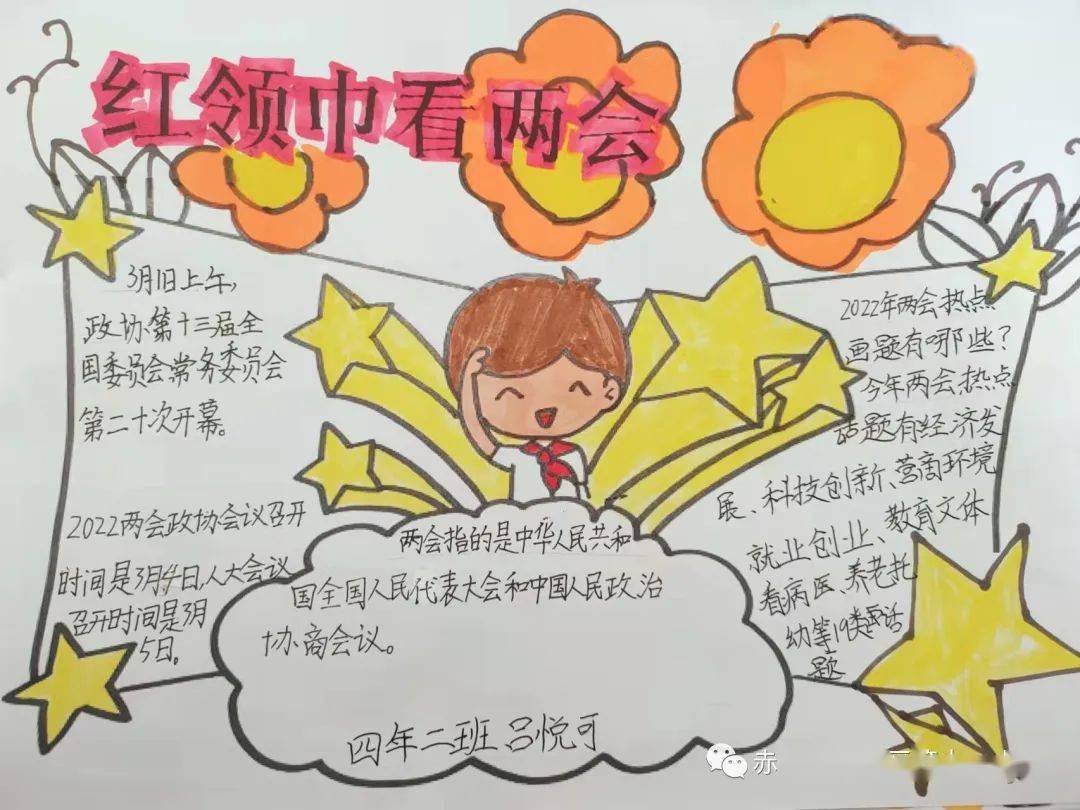 红领巾看两会
3月1日上午，
政协第十三届全
国委员会常务委员会
第二十次开幕。
2022两会政协会议召开
时间是3月4日，人大会议
召开时间是3月
5日。
两会指的是中华人民共和
国全国人民代表大会和中国人民政治
协商会议。
四年二班 吕悦可
2022年两会热点
画题有哪些？
今年两会热点
话题有经济发
展、科技创新、营商环境
就业创业、教育文体
看病医、养老托
幼等19类话
题
赤